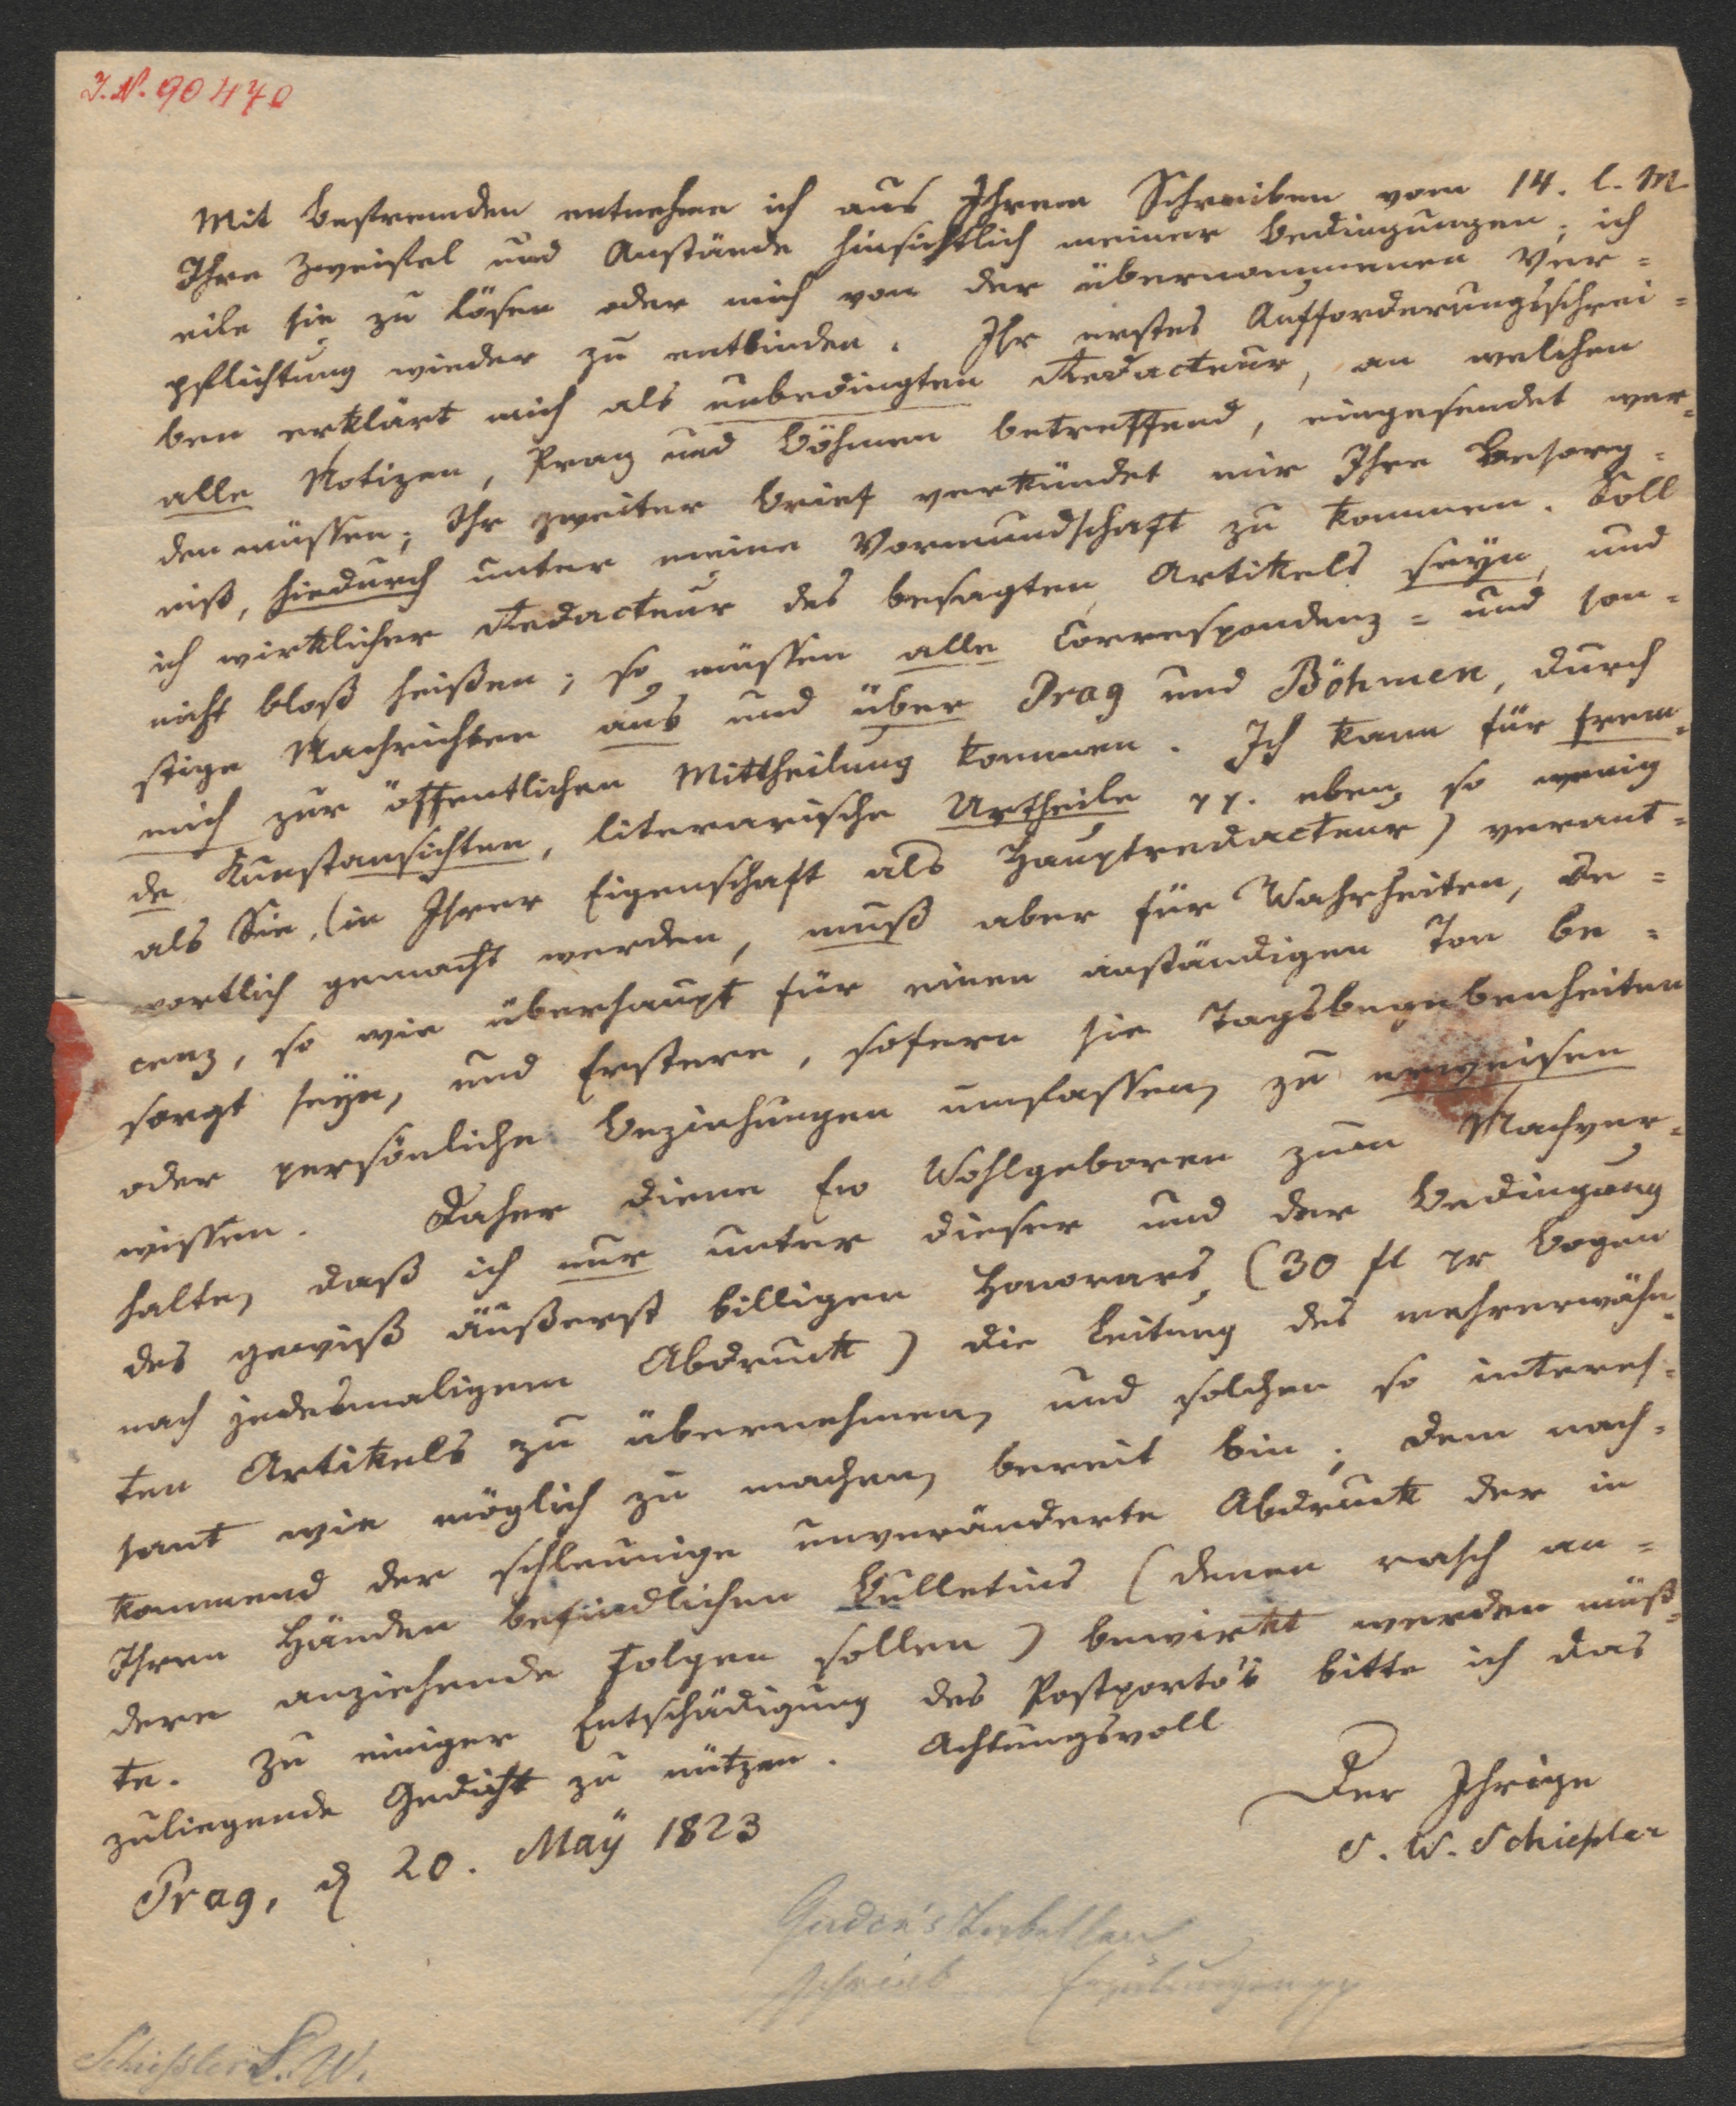 I.N. 90470
Mit Befremden entnehme ich aus Ihrem Schreiben vom 14. l. M
Ihre Zweifel und Anstände hinsichtlich meiner Bedingungen; ich
eile sie zu lösen oder mich von der übernommenen Ver=
pflichtung wieder zu entbinden. Ihr erstes Aufforderungsschrei=
ben erklärt mich als unbedingten Redacteur, an welchen
alle Notizen, Prag und Böhmen betreffend, eingesendet wer=
den müssen; Ihr zweiter Brief verkündet mir Ihre Besorg=
niß, hiedurch unter meine Vormundschaft zu kommen. Soll
ich wirklicher Redacteur des besagten Artikels seyn, und
nicht bloß heißen; so müssen alle Correspondenz= und son=
stige Nachrichten aus und über Prag und Böhmen, durch
mich zur öffentlichen Mittheilung kommen. Ich kann für frem=
de Kunstansichten, literarische Urtheile pp. eben so wenig
als Sie, (in Ihrer Eigenschaft als Hauptredacteur) verant=
wortlich gemacht werden, muß aber für Wahrheiten, De=
cenz, so wie überhaupt für einen anständigen Ton be=
sorgt seyn, und Erstere, sofern sie Tagsbegebenheiten
oder persönliche Beziehungen umfassen, zu erweisen
wissen. Daher diene Ew Wohlgeboren zum Nachver=
halten, daß ich nur unter dieser und der Bedingung
des gewiß äußerst billigen Honorars (30 fl pr Bogen
nach jedesmaligem Abdruck) die Leitung des mehrerwähn=
ten Artikels zu übernehmen, und solchen so interes=
sant wie möglich zu machen, bereit bin; dem nach=
kommend der schleunige unveränderte Abdruck der in
Ihren Händen befindlichen Bulletins (denen rasch an=
dere anziehende folgen sollen) bewirkt werden müß=
te. Zu einiger Entschädigung des Postporto's bitte ich das
zuliegende Gedicht zu nützen. Achtungsvoll
Der Ihrige
S. W. Schießler
Prag, d 20. Maÿ 1823
schrieb Erzählungen pp
Schießler S. W.